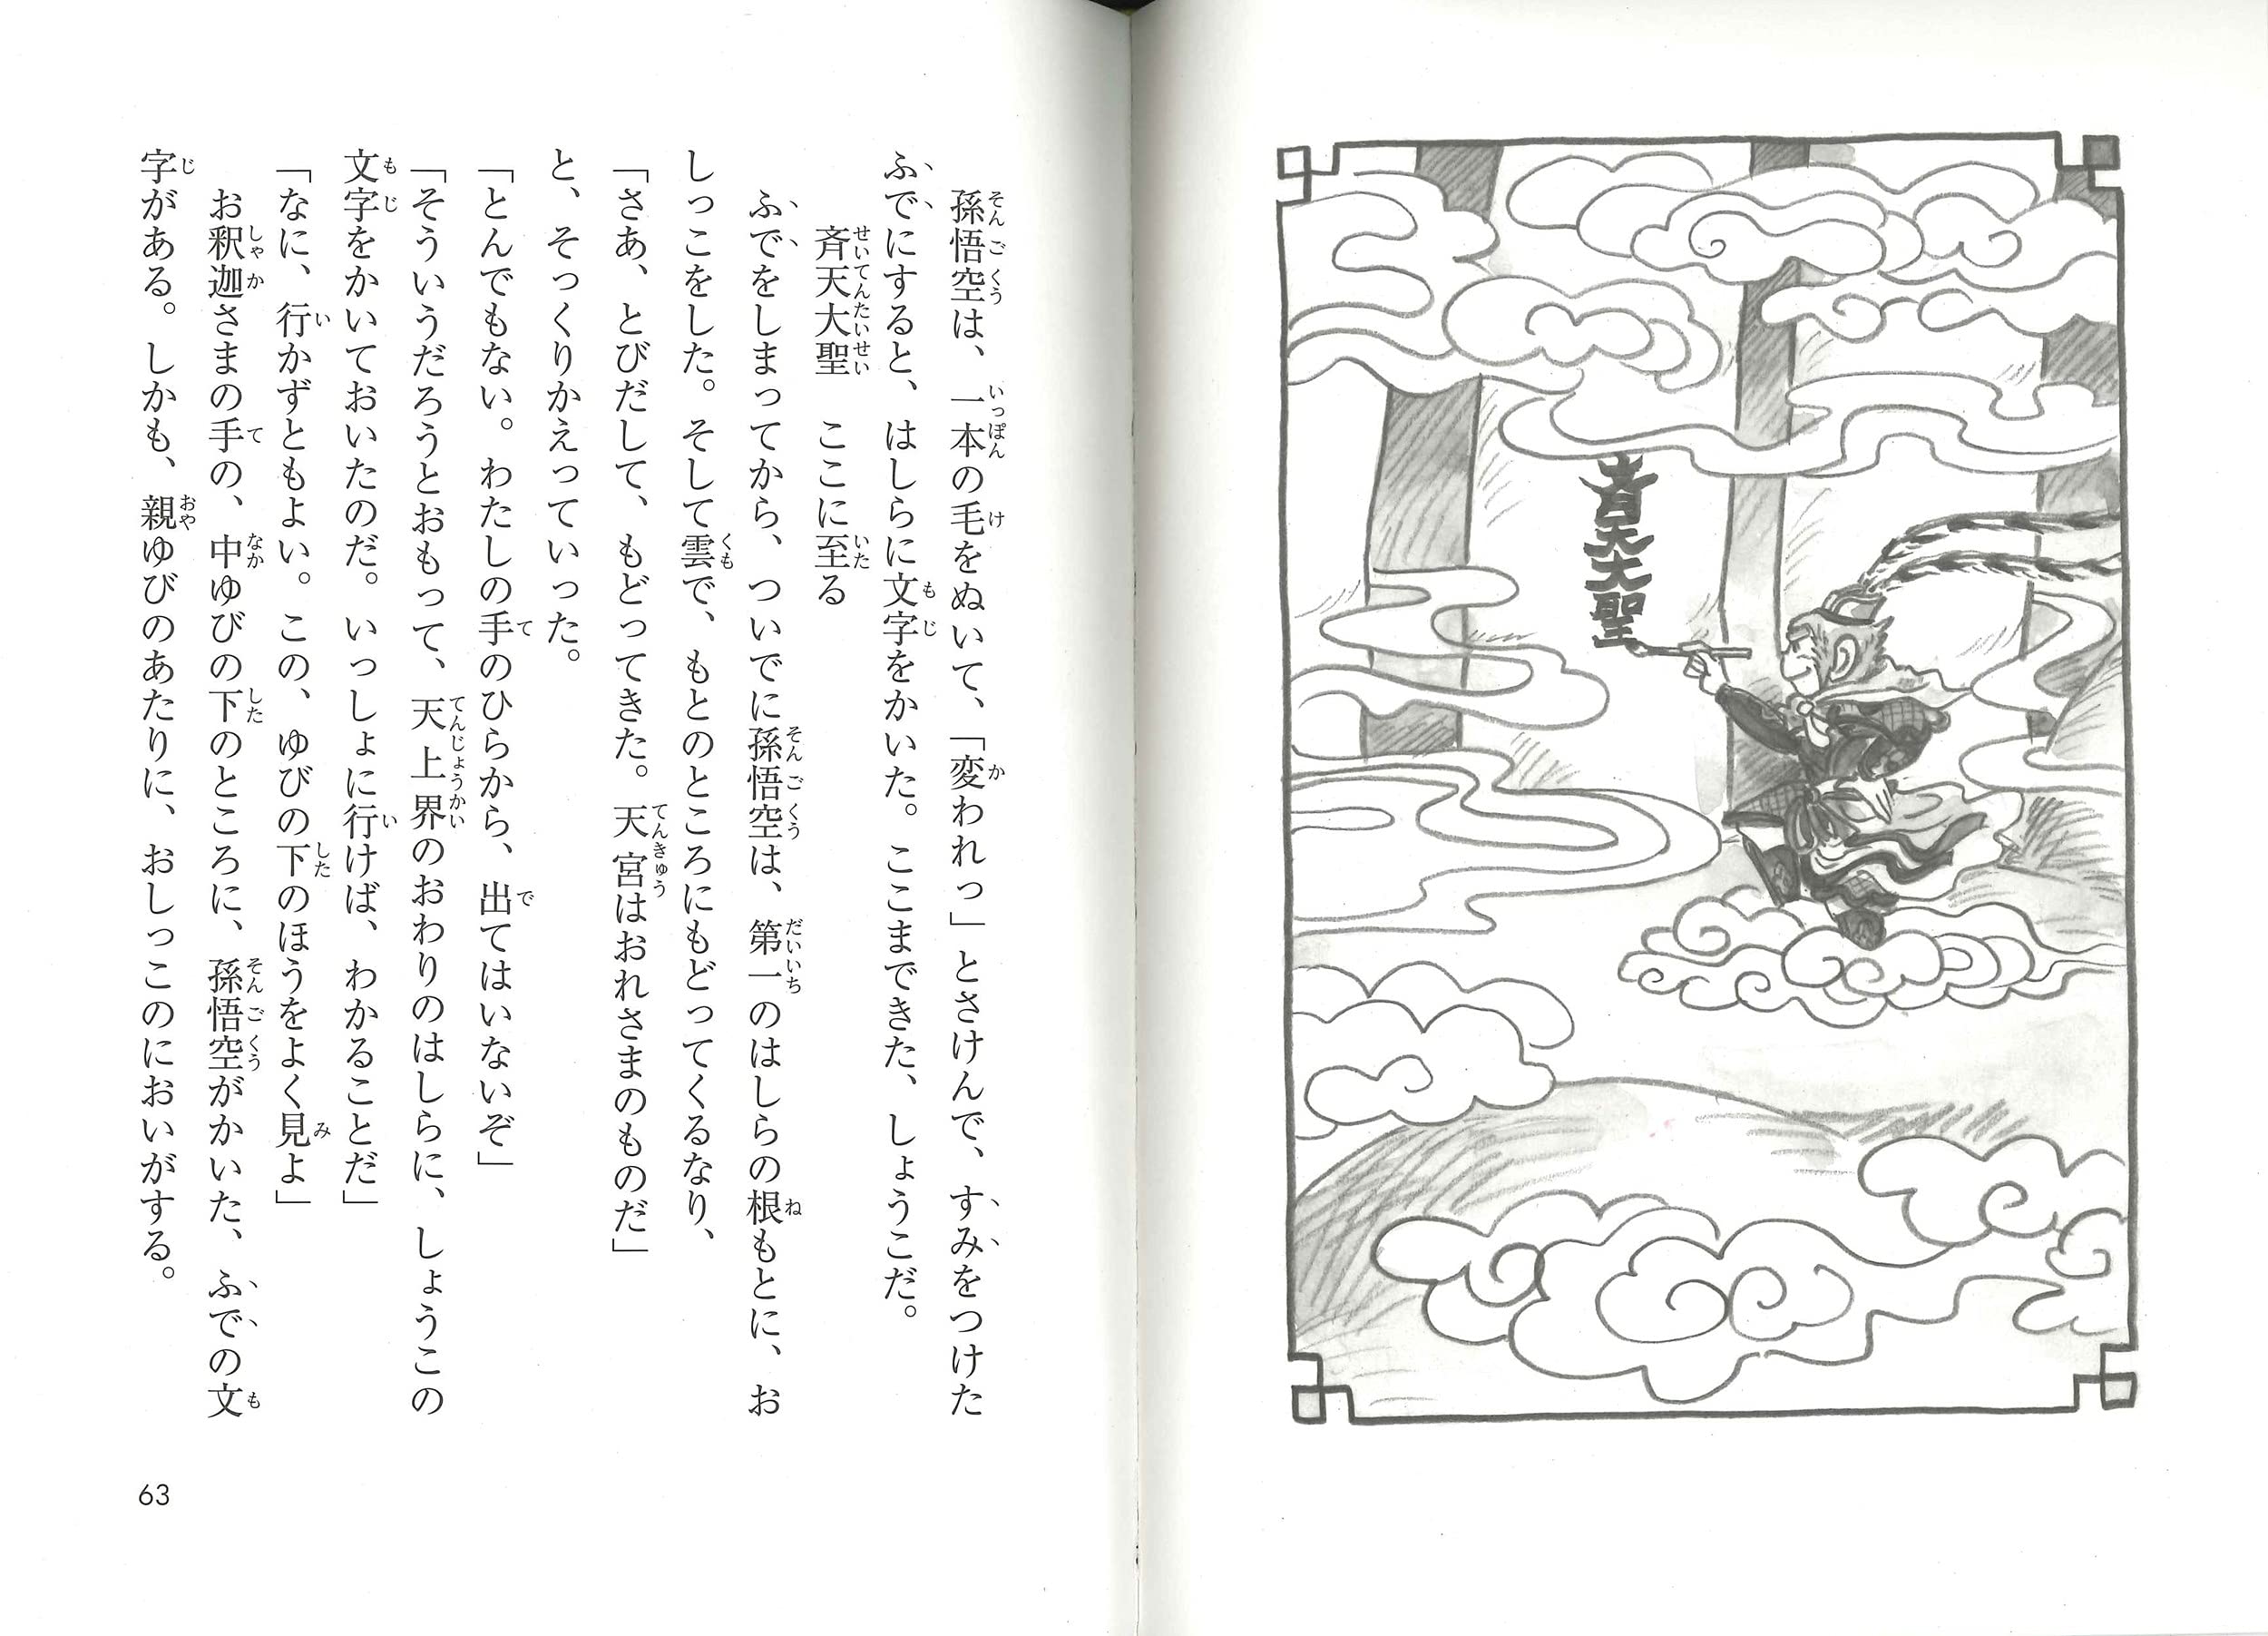 斉天大聖
孫悟空は、一本の毛をぬいて、「変われっ」とさけんで、すみをつけた
ふでにすると、はしらに文字をかいた。ここまできた、しょうこだ。
斉天大聖　ここに至る
ふでをしまってから、ついでに孫悟空は、第一のはしらの根もとに、お
しっこをした。そして雲で、もとのところにもどってくるなり、
「さあ、とびだして、もどってきた。天宮はおれさまのものだ」
と、そっくりかえっていった。
「とんでもない。わたしの手のひらから、出てはいないぞ」
「そういうだろうとおもって、天上界のおわりのはしらに、しょうこの
文字をかいておいたのだ。いっしょに行けば、わかることだ」
「なに、行かずともよい。この、ゆびの下のほうをよく見よ」
お釈迦さまの手の、中ゆびの下のところに、孫悟空がかいた、ふでの文
字がある。しかも、親ゆびのあたりに、おしっこのにおいがする。
63